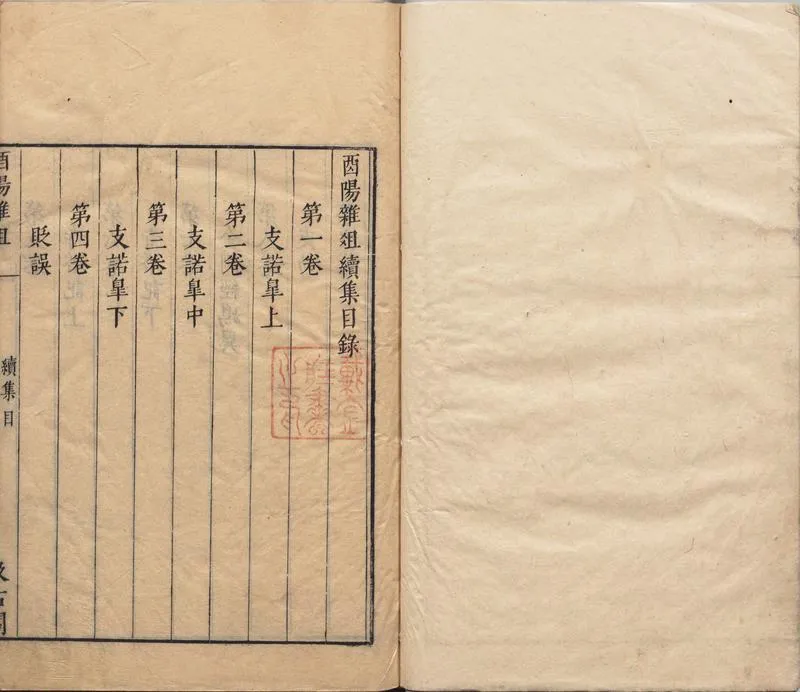 酉陽雜俎續集目錄
第一卷
支諾皐上
第二卷
支諾皐中
第三卷
支諾皐下
第四卷
貶誤
酉陽雜俎
續集目
汲古閣